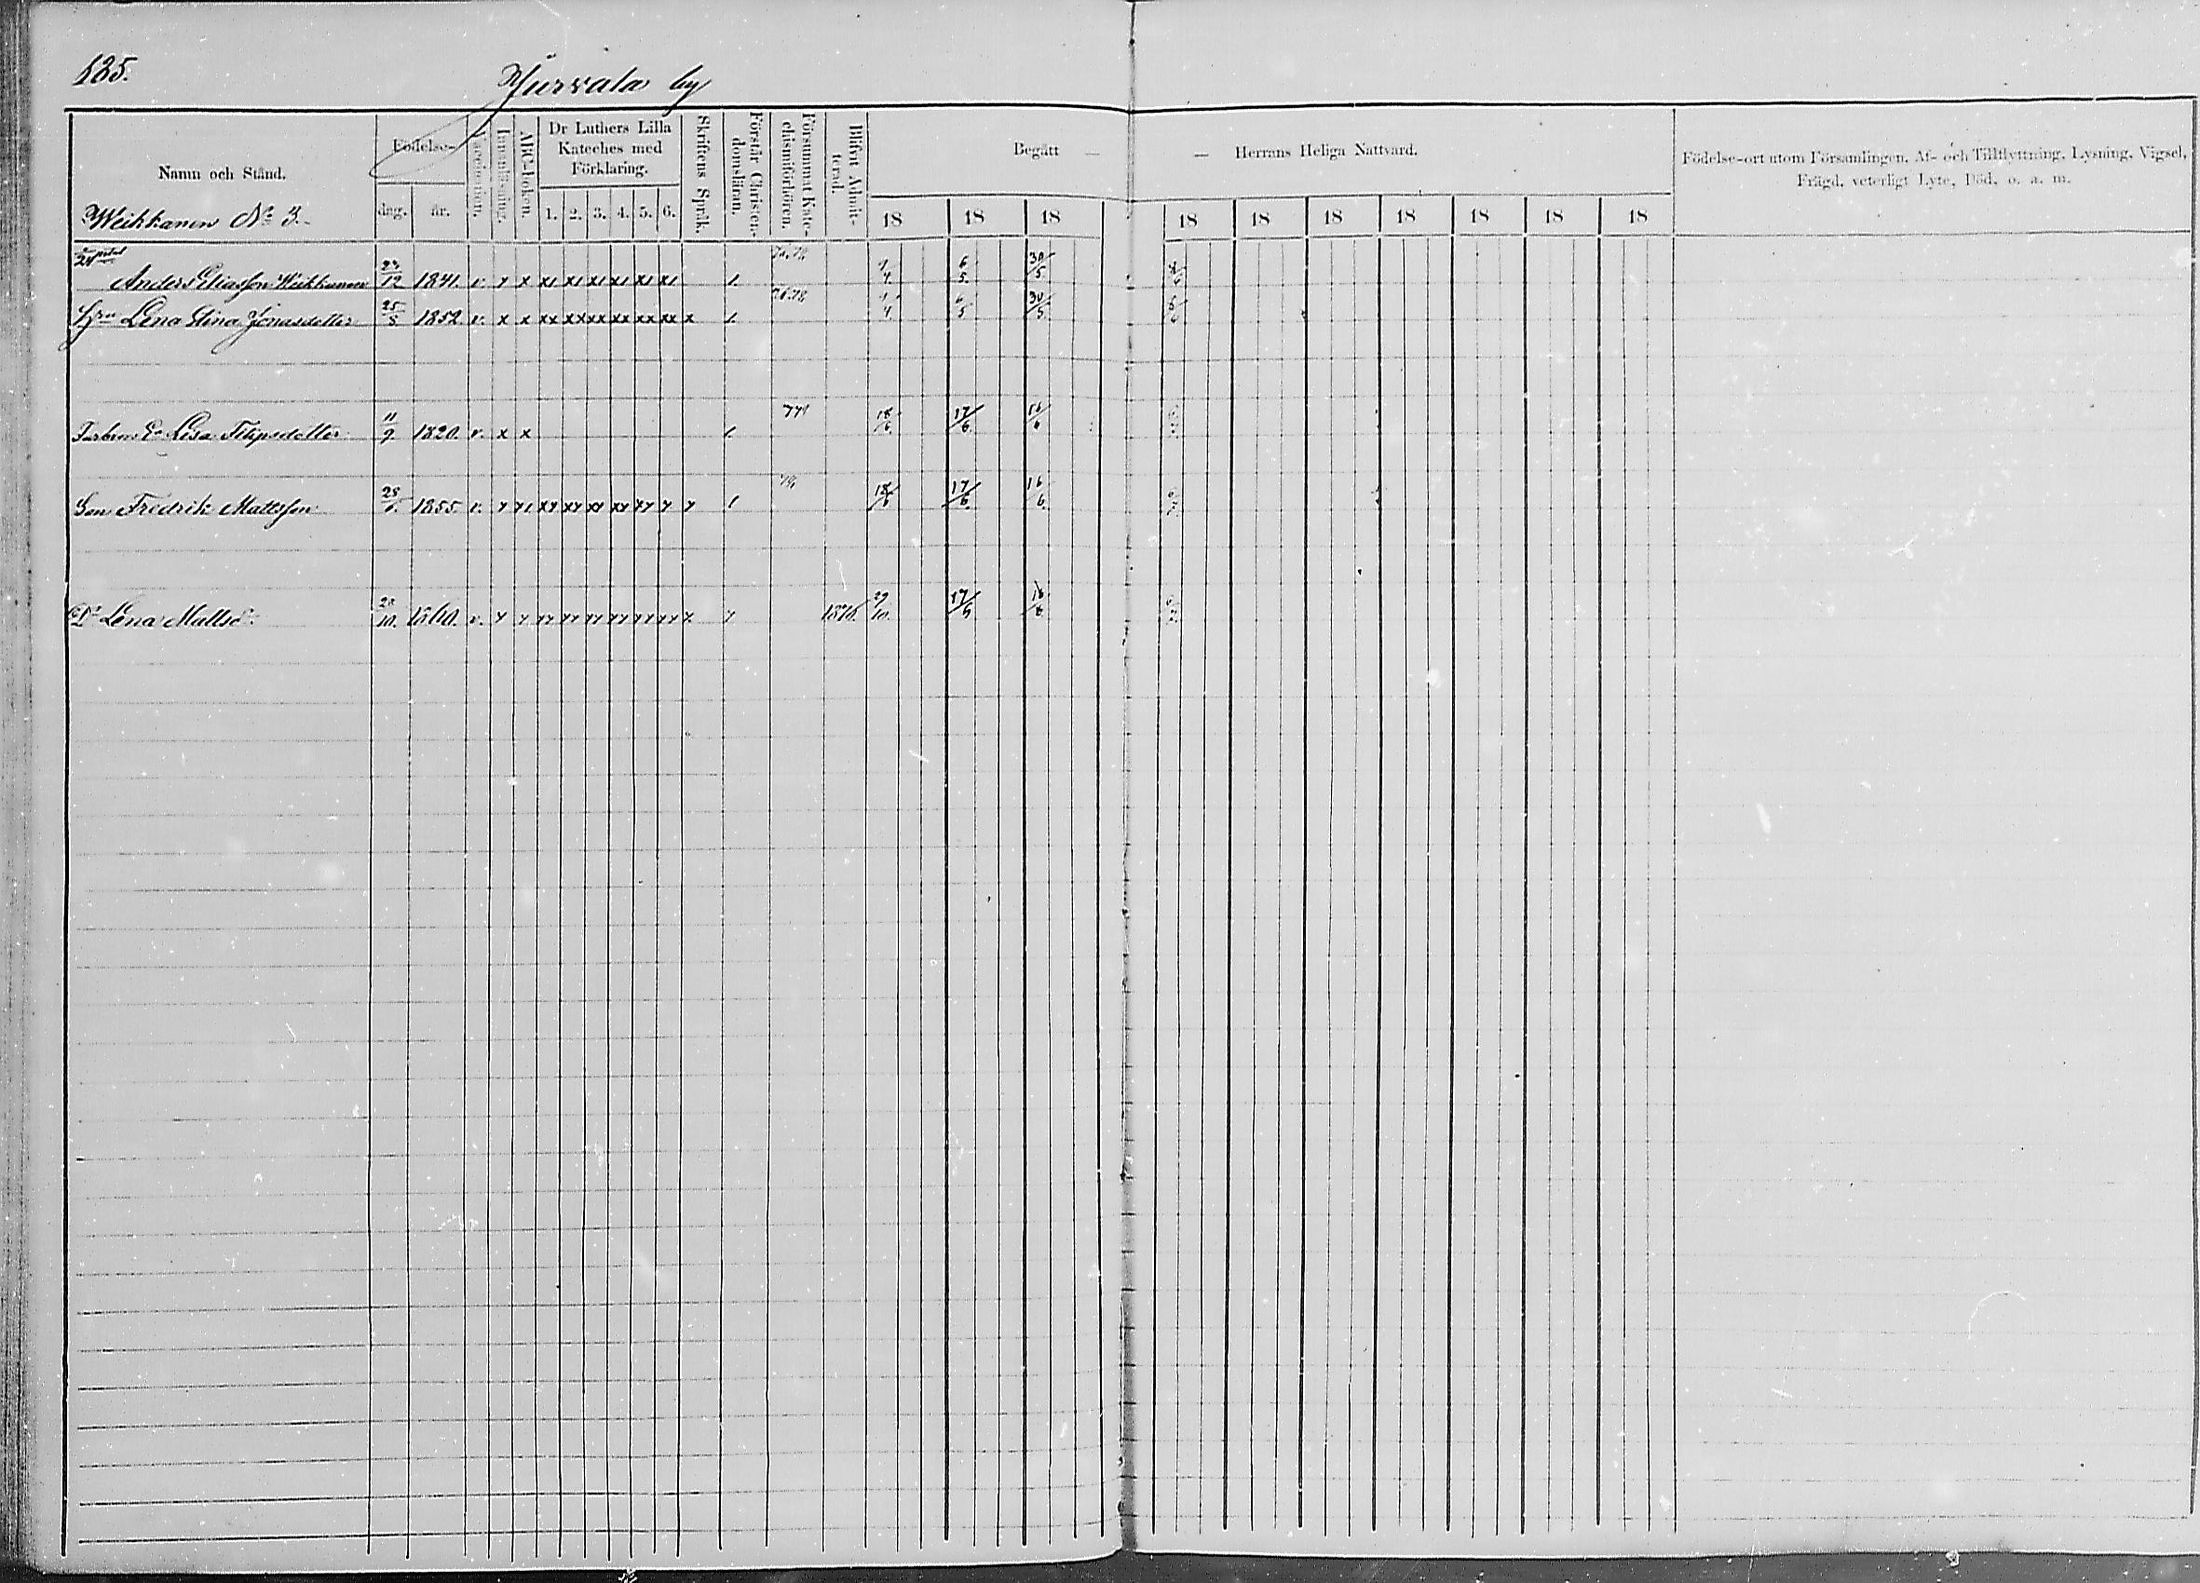 125.
Jurvala by
Namn och Stånd.
Födelse-
dag.
år.
Vaccination.
Innanläsning.
ABC-boken.
Dr Luthers Lilla
Kateches med
Förklaring.
1. 2. 3. 4. 5. 6.
Skriftens Språk.
Förstår Christen-
domsläran.
Försummat Kate-
chismiförhören.
Blifvit Admit-
terad.
Begått —
— Herrans Heliga Nattvard.
18 18 18 18 18 18 18 18 18 18
Födelse-ort utom Församlingen, Af- och Tillflyttning, Lysning, Vigsel,
Frägd, veterligt Lyte, Död, o. a. m.
Weikkanen No 3.
Anders Eliasson Weikkanen 23/12 1841. v. x x x1 x1 x1 x1 x1 x1 1. 6/5 30/5
Hru Lena Stina Jonasdotter 25/5 1852 v. x x xx xx xx xx xx xx x 1. 6/5 30/5
Lisa Filipsdotter 11/9 1820. v. x x 1. 18/6 17/6 16/6
Son Fredrik Mattsson 1855 v. 1 18/6 17/6 16/6
Dr Lena Mattsd: 20/10. 1860. v. 1876. 29/10. 17/6 16/6